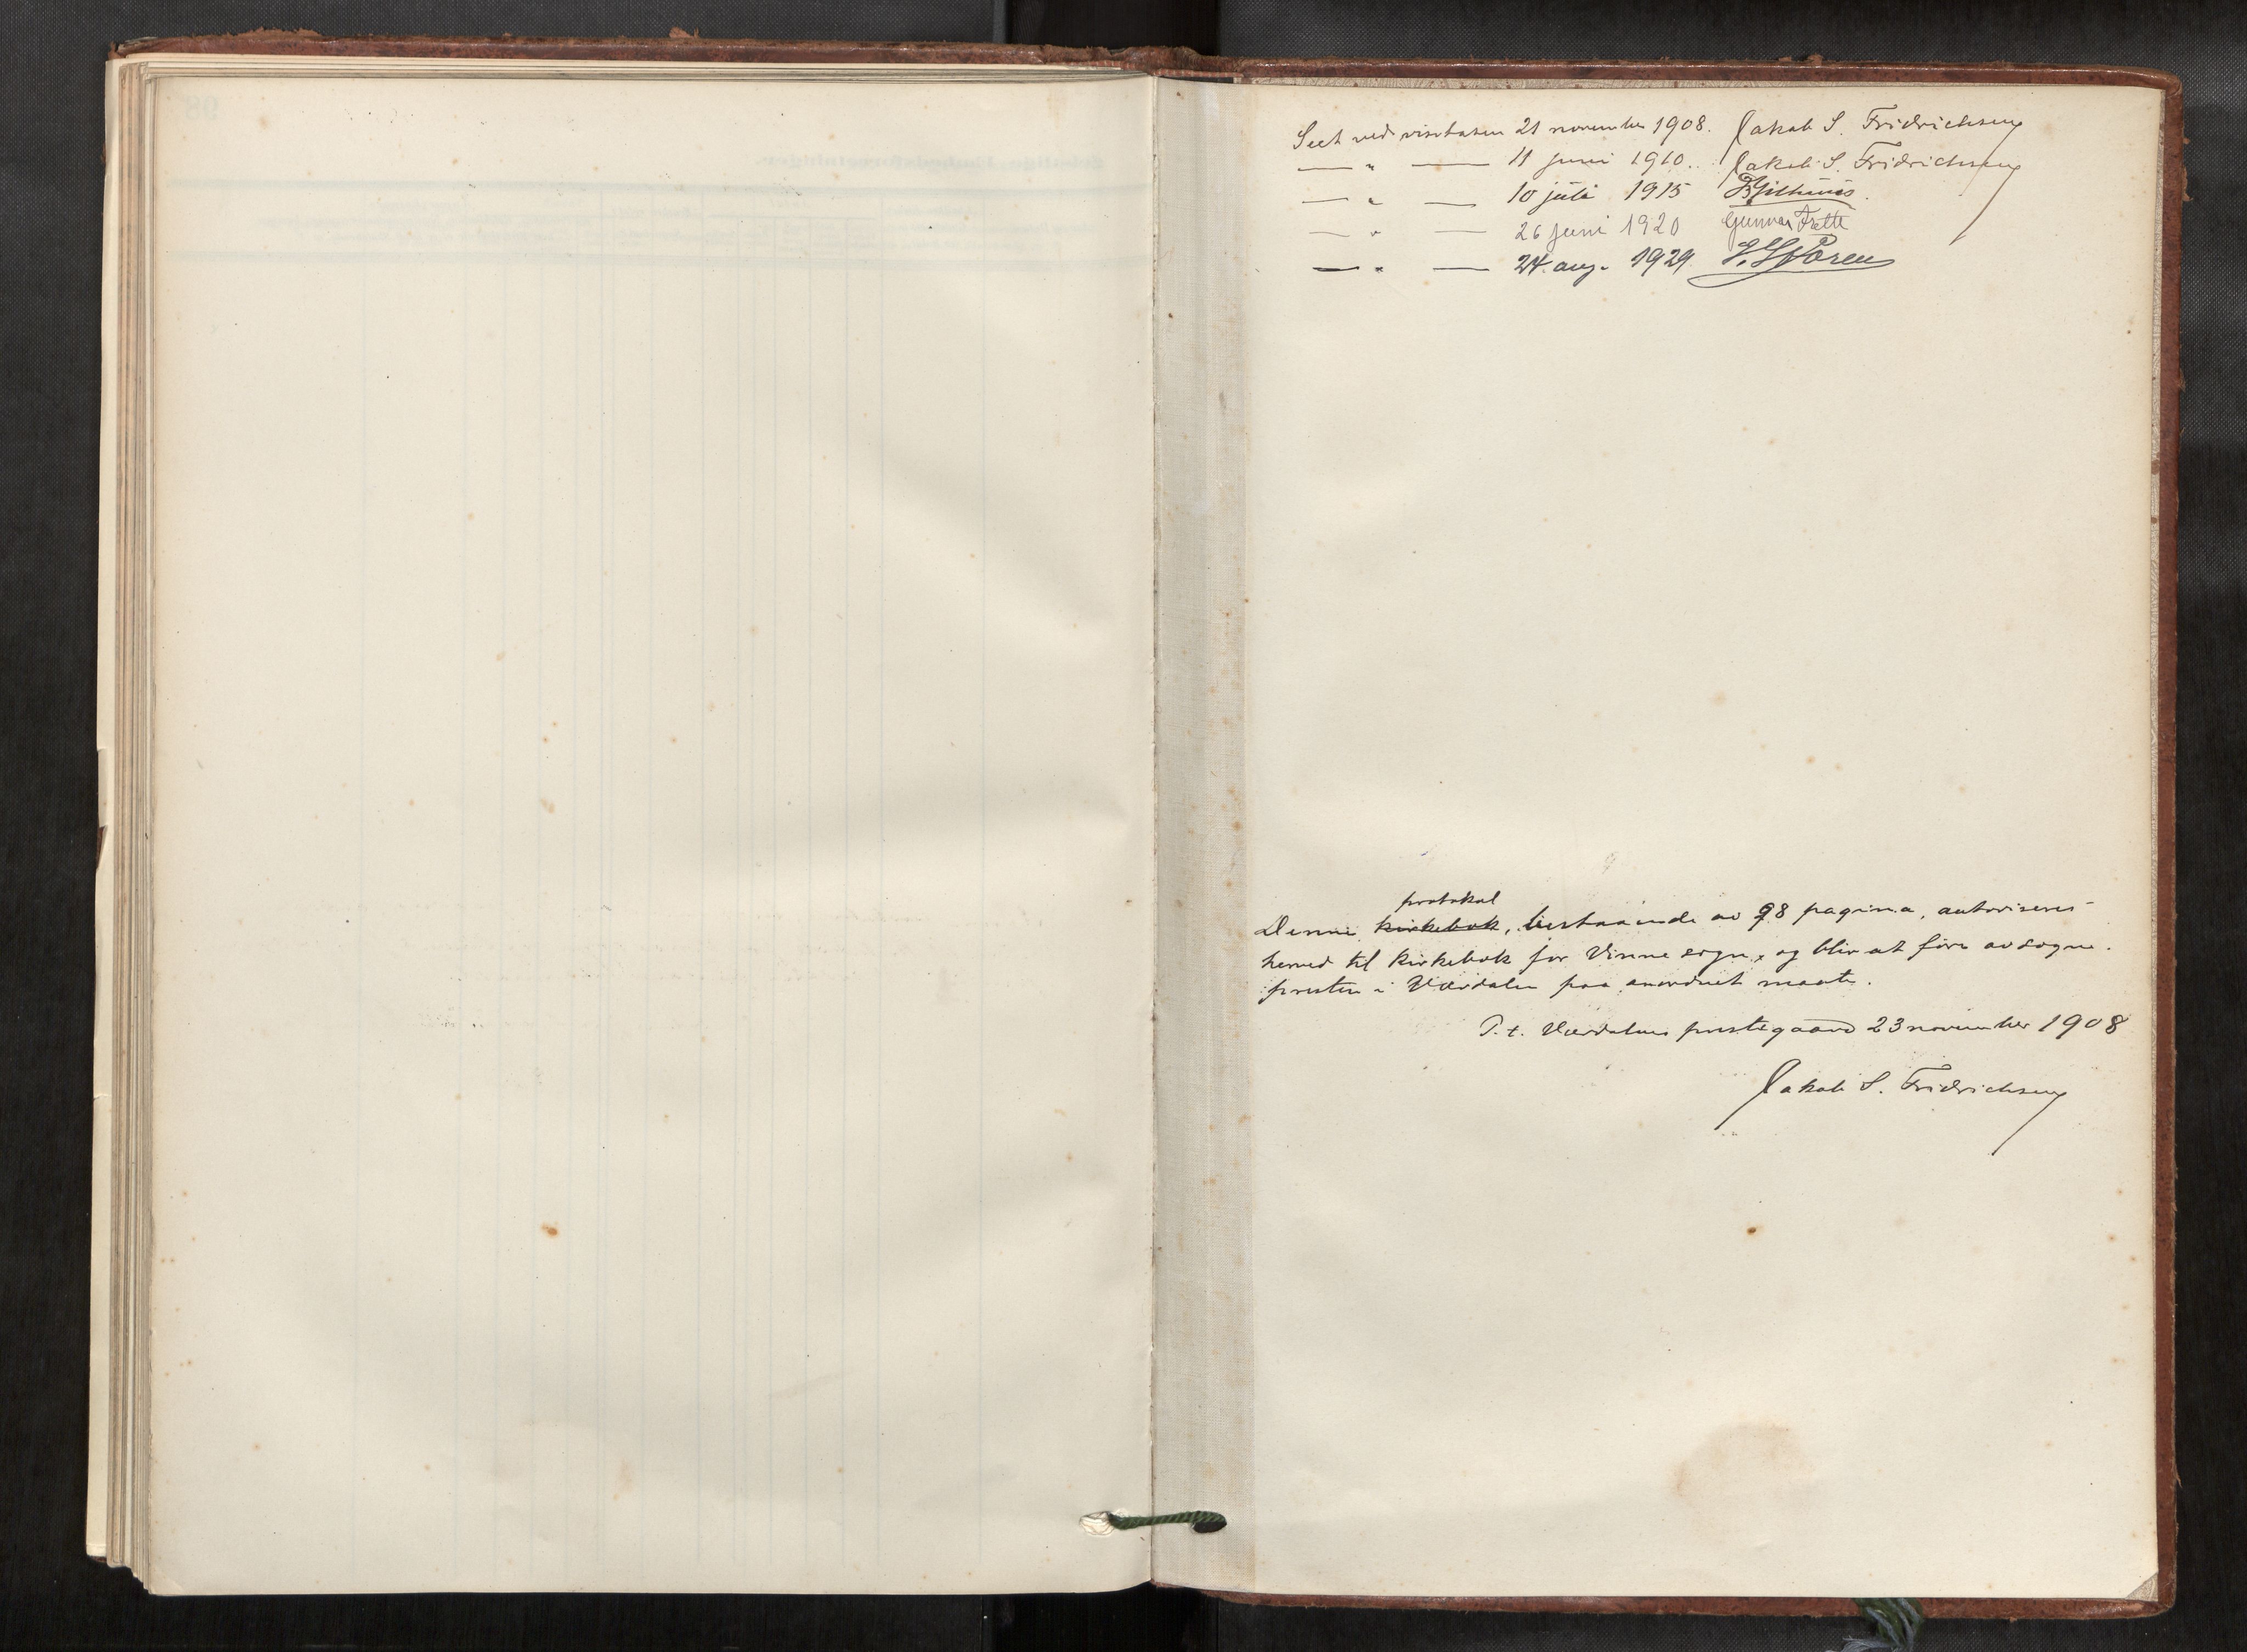 Seet ved visitasen 21 november 1908. Jakob S. Fridrichsen
— " — 11 juni 1910. Jakob S. Fridrichsen
— " — 10 juli 1915
— " — 26 juni 1920 Gunvar
— " — 24. aug. 1929 Støren
protokol
Denne kirkebok, bestaaende av 98 pagina, autoriseres
herved til kirkebok for Vinne sogn, og blir at føre av sogne-
presten i Værdalen paa anordnet maate.
P. t. Værdalens prestegaard 23 november 1908
Jakob S. Fridrichsen